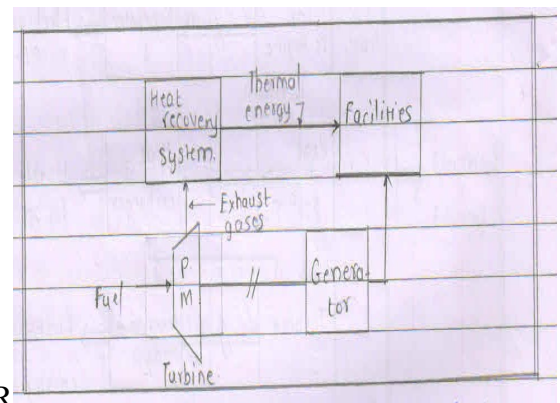 Heat
recovery
System.
Thermal
energy
Facilities
Exhaust
gases
Fuel
P
M
Genera-
tor
Turbine
R